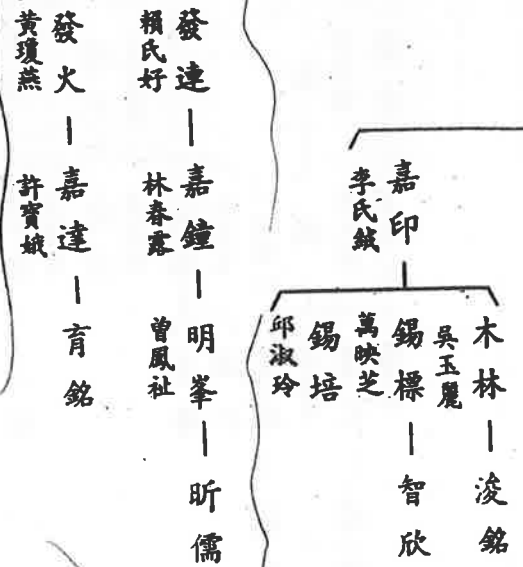 嘉印
李氏絨
木林
吳玉麗
浚銘
錫標
萬映芝
智欣
錫培
邱淑玲
發連
賴氏好
嘉鐘
林春露
明峯
曾鳳祉
昕儒
發火
黃瓊燕
嘉達
許寶娥
育銘